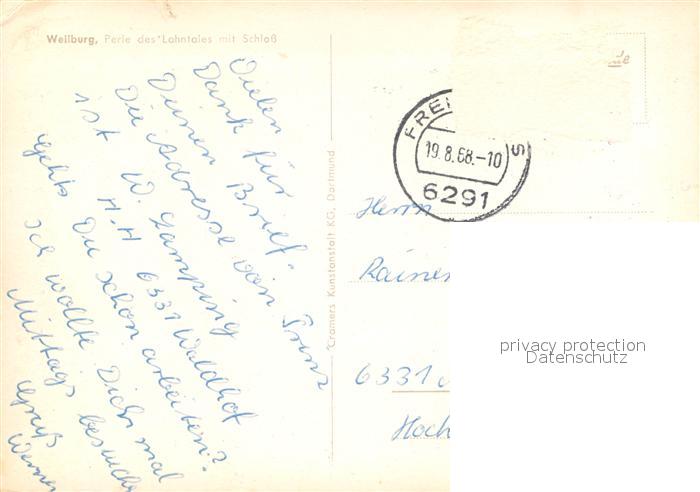 Weilburg, Perle des Lahntales mit Schloß
Vielen
Dank für
Deinen Brief.
Die Adresse von
ist W.
H.H 6331 Waldhof
Gehts Du schon arbeiten?
Ich wollte Dich mal
Mittags besuchen
Gruß
Werner
Cramers Kunstanstalt KG, Dortmund
FREI S
19.8.68.-10
6291
Herrn
Rainer
6331
Hoch
privacy protection
Datenschutz